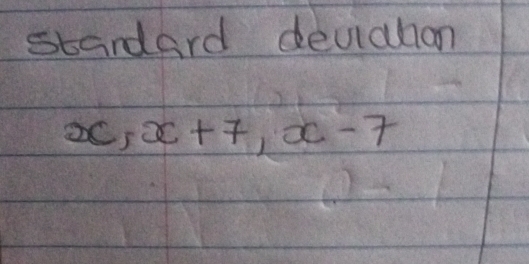 standard deviation
x, x + 7, x - 7